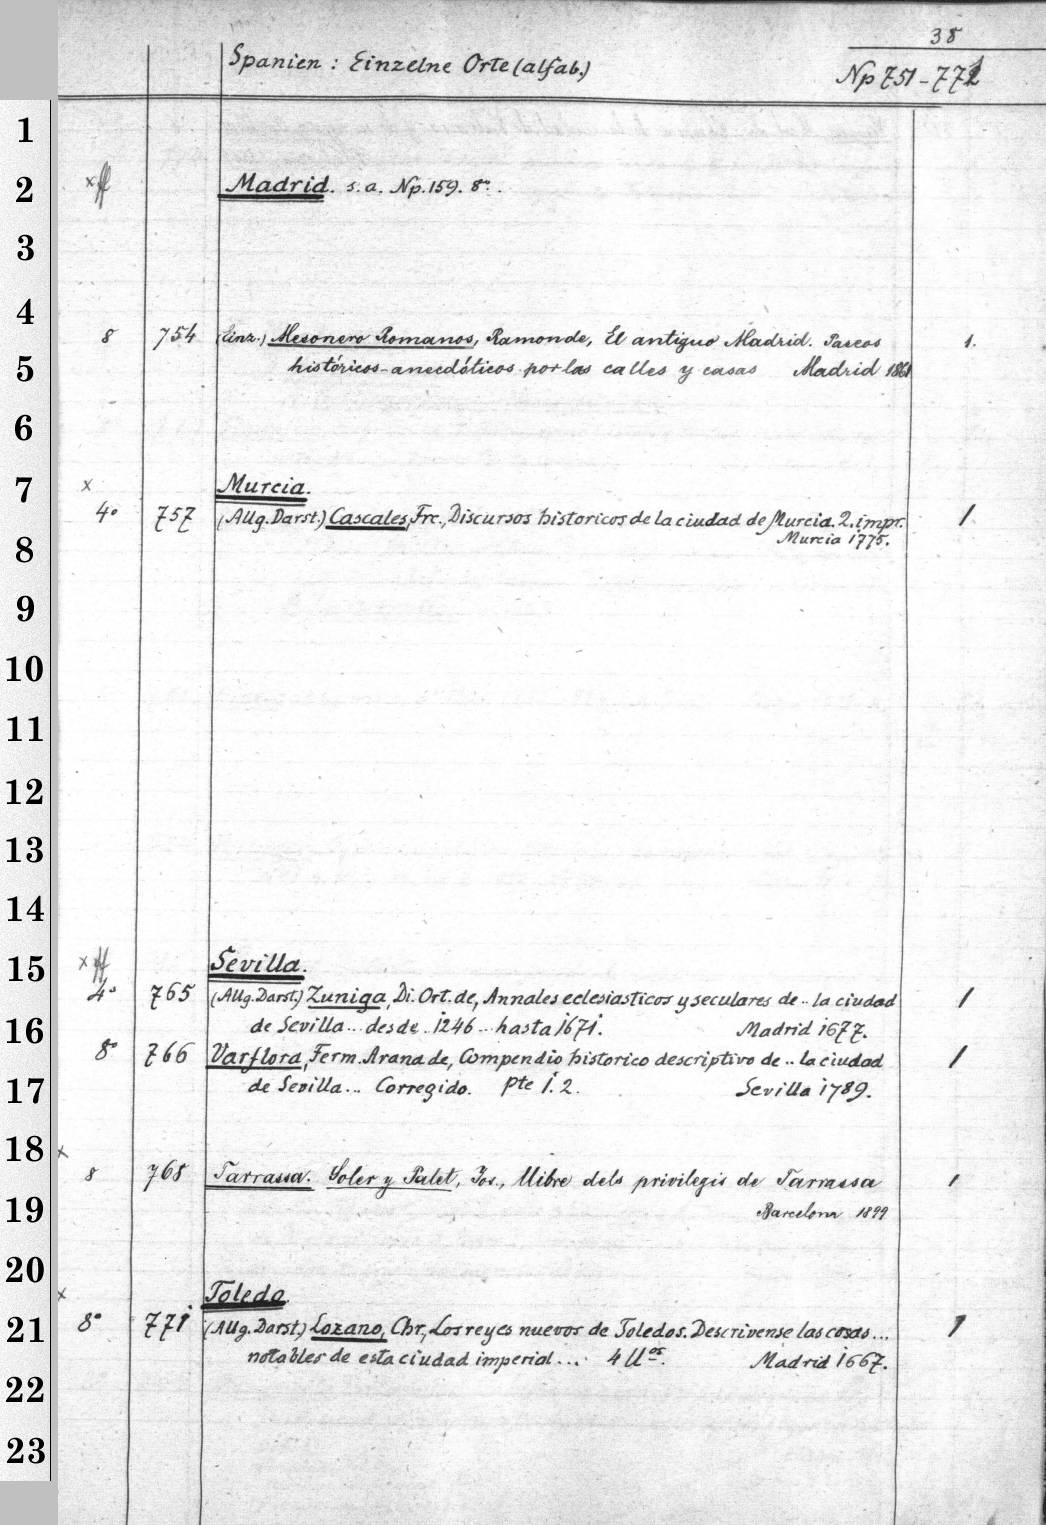 38
Spanien : Einzelne Orte (alfab.) Np 751-772
1
2 Madrid. s. a. Np. 159. 8°.
3
4 8 754 (Einz.) Mesonero Romanos, Ramonde, El antiguo Madrid. Paseos 1.
5 históricos-anecdóticos por las calles y casas Madrid 1861
6
7 x Murcia.
4° 757 (Allg. Darst.) Cascales, Frc., Discursos historicos de la ciudad de Murcia. 2. impr. 1
8 Murcia 1775.
9
10
11
12
13
14
15 x Sevilla.
4° 765 (Allg. Darst.) Zuniga, Di. Ort. de, Annales eclesiasticos y seculares de .. la ciudad 1
16 de Sevilla ... desde .. 1246 .. hasta 1671. Madrid 1677.
8° 766 Varflora, Ferm. Arana de, Compendio historico descriptivo de .. la ciudad 1
17 de Sevilla ... Corregido. pte 1. 2. Sevilla 1789.
18 x
8 768 Tarrassa. Soler y Palet, Jos., Llibre dels privilegis de Tarrassa 1
19 Barcelona 1899
20 x Toledo.
21 8° 771 (Allg. Darst.) Lozano, Chr., Los reyes nuevos de Toledos. Descrivense las cosas ... 1
notables de esta ciudad imperial .... 4 ll os. Madrid 1667.
22
23